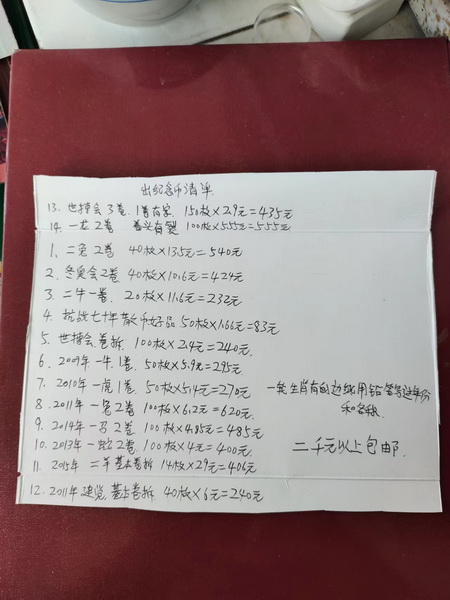 出纪念币清单
13. 世博会3卷. 1卷有字. 150枚×2.9元=435元
14. 一龙2卷 卷头有裂 100枚×5.55=555元
1. 二兔2卷 40枚×13.5元=540元
2. 冬奥会2卷 40枚×10.6元=424元
3. 二牛一卷. 20枚×11.6元=232元
4. 抗战七十年散币好品 50枚×1.66元=83元
5. 世博会卷拆. 100枚×2.4元=240元.
6. 2009年一牛.1卷. 50枚×5.9元=295元
7. 2010年一虎1卷. 50枚×5.4元=270元
一轮生肖有的边纸用铅笔写过年份和名称.
8. 2011年一兔2卷 100枚×6.2元=620元.
9. 2014年一马2卷 100枚×4.85元=485元
10. 2013年一蛇2卷. 100枚×4元=400元.
二千元以上包邮.
11. 2015年 二羊基本卷拆 14枚×29元=406元
12. 2011年建党.基本卷拆 40枚×6元=240元